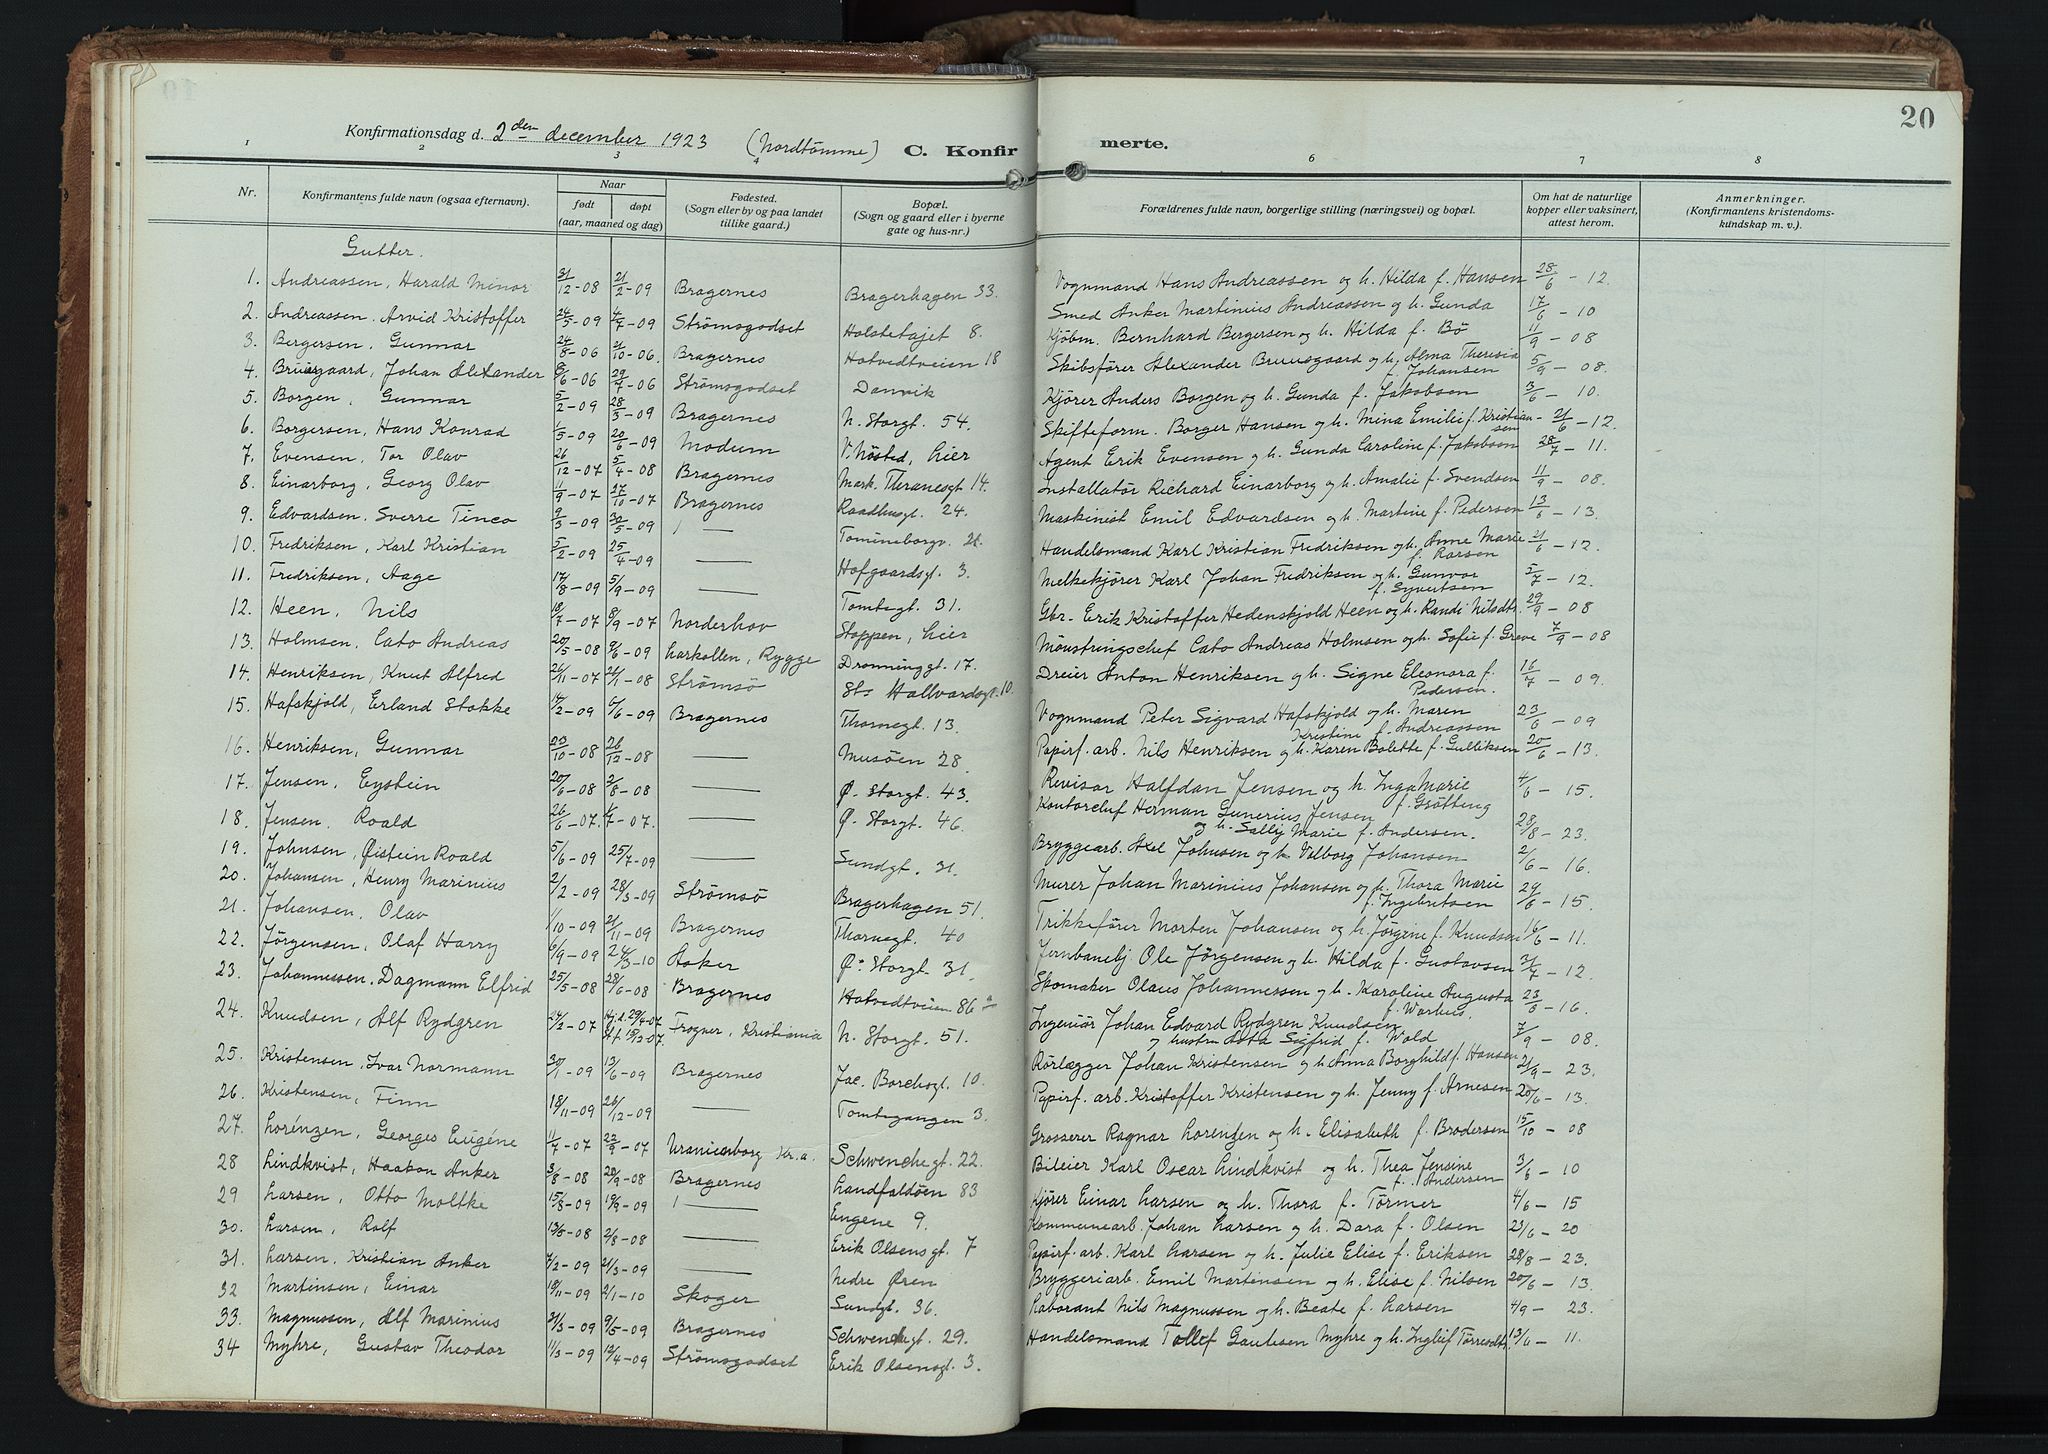 20
Konfirmationsdag d. 2den december 1923 (Nordtømme) C. Konfir merte.
1 2 3 4 6 7 8
Nr. Konfirmantens fulde navn (ogsaa efternavn). Naar født døpt (aar, maaned og dag) Fødested. (Sogn eller by og paa landet tillike gaard.) Bopæl. (Sogn og gaard eller i byerne gate og hus-nr.) Forældrenes fulde navn, borgerlige stilling (næringsvei) og bopæl. Om hat de naturlige kopper eller vaksinert, attest herom. Anmerkninger. (Konfirmantens kristendoms-kundskap m. v.).
Gutter.
1. Andreassen, Harald Minor 31/12-08 21/2-09 Bragernes Bragerhagen 33. Vognmand Hans Andreassen og h. Hilda f. Hansen 28/6 - 12.
2. Andreassen. Arvid Kristoffer 24/5-09 4/7-09 Strømsgodset Holstetajet 8. Smed Anker Martinius Andreassen og h. Gunda 17/6 - 10
3. Bergersen, Gunnar 24/8-06 21/10-06. Bragernes Hotvedtveien 18 Kjøbm. Bernhard Bergersen og h. Hilda f. Bö 11/9 - 08
4. Bruusgaard, Johan Alexander 6/6-06 29/7-06 Strømsgodset Danvik Skibsfører Alexander Bruusgaard og h. Alma Theresia f. Johansen 5/9 - 08.
5. Borgen, Gunnar 5/2-09 28/3-09 Bragernes N. Storgt. 54. Kjører Anders Borgen og h. Gunda f. Jakobsen 3/6 - 10.
6. Borgersen, Hans Konrad 1/5-09 20/6-09 Modum V. Nøsted, Lier Skifteform. Borger Hansen og h. Mina Emilie f. Kristiansen 21/6 - 12.
7. Evensen, Tor Olav 26/12-07 5/4-08 Bragernes Mark. Thranesgt 14. Agent Erik Evensen og h. Gunda Caroline f. Jakobsen 28/7 - 11.
8. Einarborg, Georg Olav 11/9-07 27/10-07 Bragernes Raadhusgt. 24. Installatør Richard Einarborg og h. Amalie f. Svendsen 11/9 - 08.
9. Edvardsen, Sverre Tinco 9/3-09 30/5-09 — Tomineborgv. 21. Maskinist Emil Edvardsen og h. Martine f. Pedersen 13/6 - 13.
10. Fredriksen, Karl Kristian 5/2-09 25/4-09 — Hofgaardsgt. 3. Handelsmand Karl Kristian Fredriksen og h. Anne Marie f. Larsen 21/6 - 12.
11. Fredriksen, Aage 17/8-09 5/9-09 — Tomtegt. 31. Melkekjører Karl Johan Fredriksen og h. Gunvor f. Syvertsen 5/7 - 12.
12. Heen, Nils 18/7-07 8/9-07 Norderhov Stoppen, Lier Gbr. Erik Kristoffer Hedenskjold Heen og h. Randi Nilsdtr. 29/9 - 08
13. Holmsen, Cato Andreas 20/5-08 9/6-09 Larkollen, Rygge Dronninggt. 17. Mønstringschef Cato Andreas Holmsen og h. Sofie f. Greve 7/9 - 08
14. Henriksen, Knut Alfred 26/11-07 26/1-08 Strømsø Sts Hallvardsgt. 10. Dreier Anton Henriksen og h. Signe Eleonora f. Pedersen. 16/7 - 09.
15. Hafskjold, Erland Stokke 14/2-09 6/6-09 Bragernes Thornegt. 13. Vognmand Peter Sigvard Hafskjold og h. Maren Kristine f. Andreassen 23/6 - 09
16. Henriksen, Gunnar 23/10-08 26/12-08 — Musöen 28. Papirf. arb. Nils Henriksen og h. Karen Bolette f. Gulliksen 20/6 - 13.
17. Jensen, Eystein 20/6-08 2/8-08 — Ø. Storgt. 43. Revisor Halfdan Jensen og h. Inga Marie f. Grötteng 4/6 - 15.
18. Jensen. Roald 26/6-07. 1/7-07. — Ø. Storgt. 46. Kontorchef Herman Gunerius Jensen og h. Sally Marie f. Andersen. 28/8 - 23.
19. Johnsen, Øistein Roald 5/6-09 25/7-09 — Sundgt. 31. Bryggearb. Axel Johnsen og h. Valborg Johansen 2/6 - 16.
20. Johansen, Henry Marinius 2/2-09 28/3-09 Strømsø Bragerhagen 51. Murer Johan Marinius Johansen og h. Thora Marie f. Ingebretsen 29/6 - 15.
21. Johansen, Olav 1/10-09 21/11-09 Bragernes Thornegt. 40 Trikkefører Morten Johansen og h. Jørgine f. Knudsen 16/6 - 11.
22. Jørgensen, Olaf Harry 6/9-09 24/3-10 Asker Ø. Storgt. 31. Jernbanebj. Ole Jørgensen og h. Hilda f. Gustavsen 31/7 - 12.
23. Johannessen, Dagmann Elfrid 25/5-08 28/6-08 Bragernes Hotvedtveien 86 a Skomaker Olaus Johannessen og h. Karoline Augusta f. Warhus. 23/8 - 16.
24. Knudsen, Alf Rydgren 24/2-07 Frogner, Kristiania N. Storgt. 51. Ingeniør Johan Edvard Rydgren Knudsen og hustru Asta Sigfrid f. Wold 7/9 - 08.
25. Kristensen, Ivar Normann 30/1-09 13/6-09 Bragernes Jac. Borchsgt. 10. Rørlægger Johan Kristensen og h. Anna Borghild f. Hansen 21/9 - 23.
26. Kristensen, Finn 18/11-09 26/12-09 — Tomtegangen 3. Papirf. arb. Kristoffer Kristensen og h. Jenny f. Arnesen 20/6 - 13.
27. Lorénzen, Georges Eugéne 11/7-07 22/9-07 Uranienborg Kr.a. Schwenchegt. 22. Grosserer Ragnar Lorenzen og h. Elisabeth f. Brodersen 15/10 - 08
28 Lindkvist, Haakon Anker 3/8-08 20/9-08 Bragernes Landfaldöen 83 Bileier Karl Oscar Lindkvist og h. Thea Jensine f. Andersen 3/6 - 10
29 Larsen, Otto Moltke 15/8-09 19/9-09 — Engene 9. Kjører Einar Larsen og h. Thora f. Tørmer 4/6 - 15
30. Larsen, Rolf 13/5-08 2/8-08 — Erik Olsensgt. 7 Kommunearb. Johan Larsen og h. Dora f. Olsen 23/6 - 20
31. Larsen, Kristian Anker 7/2-09 21/3-09 — Nedre Øren Papirf. arb. Karl Larsen og h. Julie Elise f. Eriksen 28/8 - 23.
32 Martinsen, Einar 18/11-09 2/1-10 Skoger Sundgt. 36. Bryggeriarb. Emil Martinsen og h. Elise f. Nilsen 20/6 - 13.
33. Magnussen, Alf Marinius 31/3-09 9/5-09 Bragernes Schwenchegt. 29. Laborant Nils Magnussen og h. Beate f. Larsen 4/9 - 23.
34 Myhre, Gustav Theodor 11/3-09 12/4-09 Strømsgodset Erik Olsensgt. 3. Handelsmand Tollef Gautesen Myhre og h. Ingleif Torresdtr. 13/6 - 11.